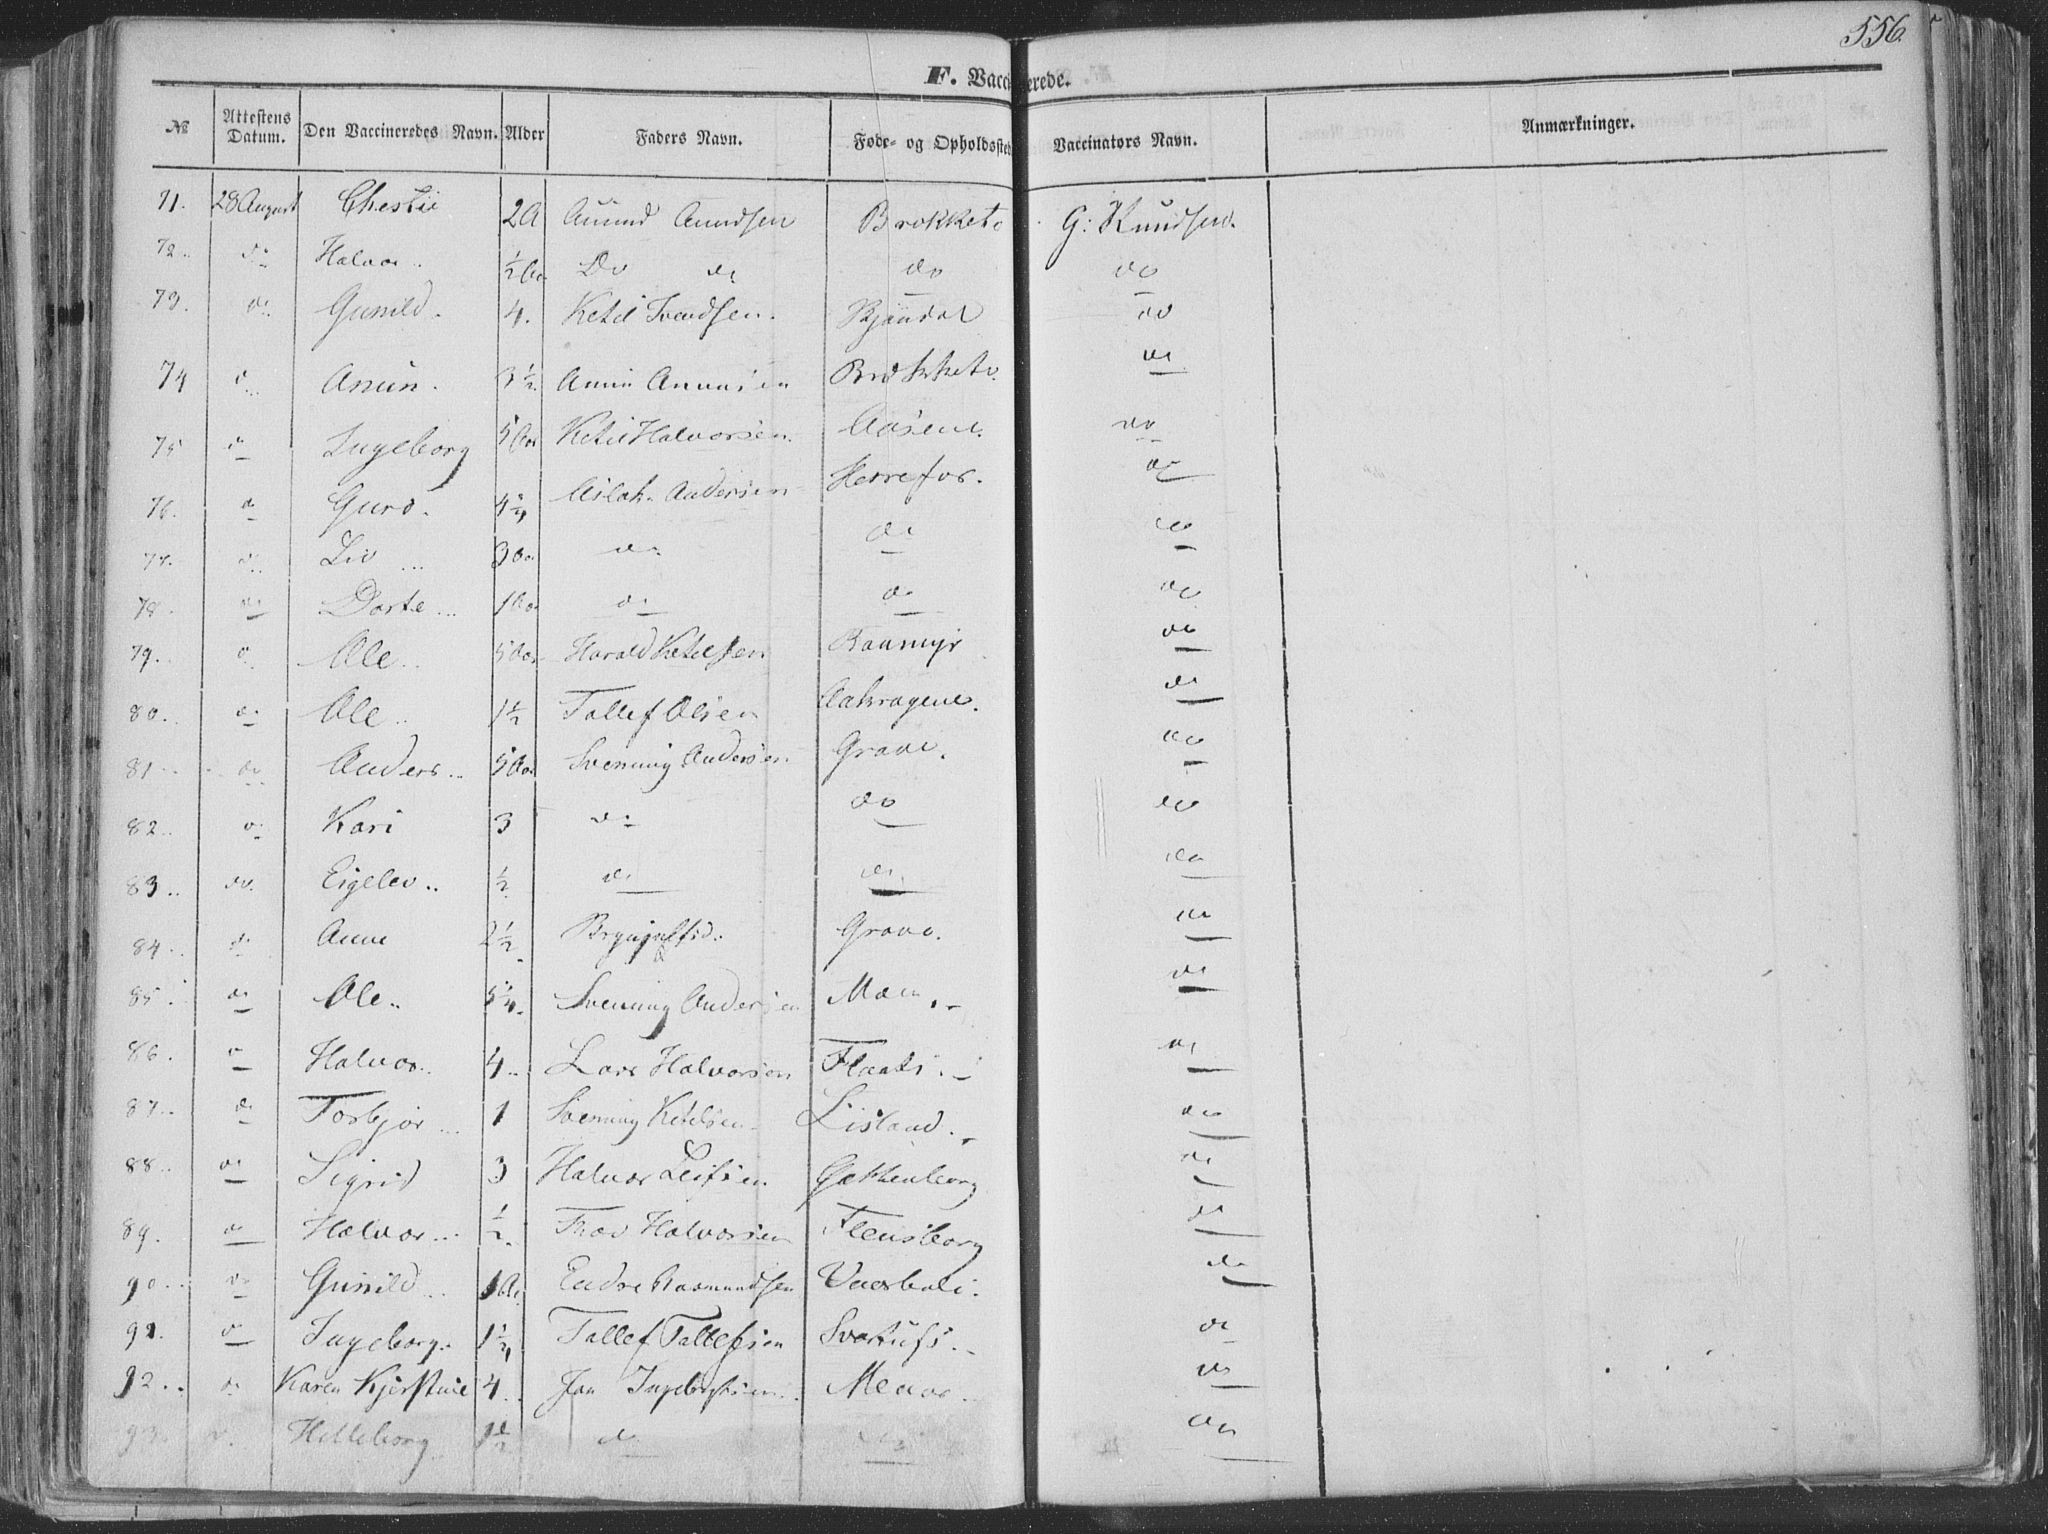 556
F. Vaccinerede.
№ Attestens Datum. Den Vaccineredes Navn. Alder Faders Navn. Føde- og Opholdssted Vaccinators Navn. Anmærkninger.
71. 28 August Chestie 2A Anund Anundsen Brokketo G: Knudsen.
72.. do Halvor.. ½ Aar Do do do do
73. do Gunild. 4. Ketil Svendsen. do
74 do 3½ Brokketo. do
75 do Ingeborg 5 Aar Ketil Halvorsen. Aasene. do
76. do Guro. Aslak Andersen Herrefos. do
77. do Liv ... 3 Aar do do do
78. do Dorte... 1 Aar do do do
79. do Ole.. 5 Aar Harald Ketelsen Baumyr do
80.. do Ole.. 1½ Tallef Olsen Aakragene. do
81.. do Anders.. 5 Aar Svenning Andersen Grave. do
82.. do Kari 3 do do do
83.. do. Eigelev.. ½ do do. do
84. do Anne 2½ Grave. do
85. do Ole.. 5¼. Svenning Andersen Moen.- do
86. do Halvor. 4.. Lars Halvorsen Flaati.- do
87.. do Torbjør... 1 Svenning Ketelsen Lisland.- do
88.. do Sigrid 3 Halvor Leifsen Gakkenborg do
89. do Halvor... ½. Thor Halvorsen Flensborg do
90.. do Gunild.. Endre Rasmundsen do
91. do Ingeborg.. Tallef Tallefsen do
92.. do Karen Kjerstine 4. Jan do
93. do. Helleborg 1½ do do do